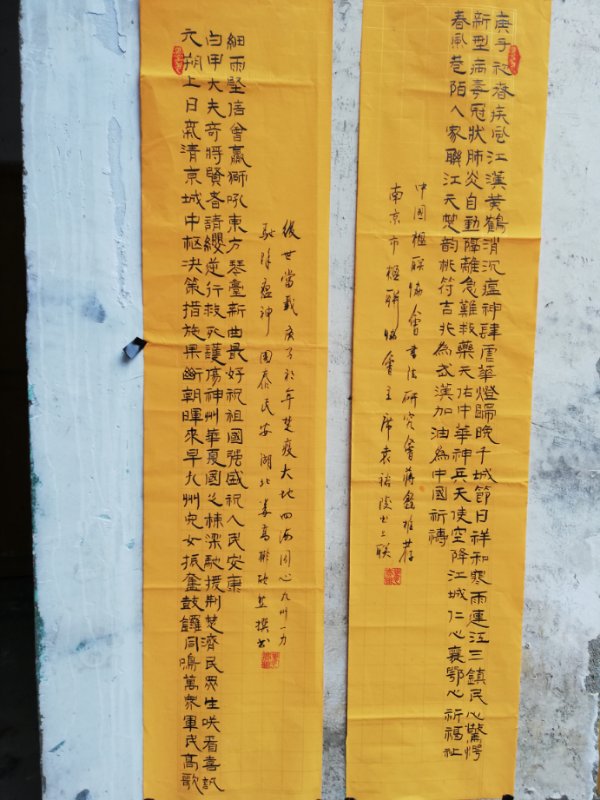 庚子初春疾風江漢黃鶴消沉瘟神肆虐華燈歸晚千城節日祥和寒雨連江三鎮民心驚愕
新型病毒冠狀肺炎自動隔離急難救藥天佑中華神兵天使空降江城仁心襄鄂心祈福祉
春風巷陌人家聯江天楚韵桃符吉兆為武漢加油為中國祈禱
中国楹联協會書法研究會蔣鑫推荐
南京市楹联協會主席袁裕陵出上联
元朔上日氣清京城中樞決策措施果斷朝暉來早九州兒女振奮鼓鑼同鳴萬衆軍民高歌
白甲大夫奇將賢者請纓逆行救死護傷神州華夏國之棟梁馳援荆楚濟民眾生咲看喜訊
細雨堅信會贏獅吼東方琴臺新曲最好祝祖國強盛祝人民安康
後世當載庚子年楚疫大地四海同心九州一力
瘟神國泰民安湖北姜高彬撰书